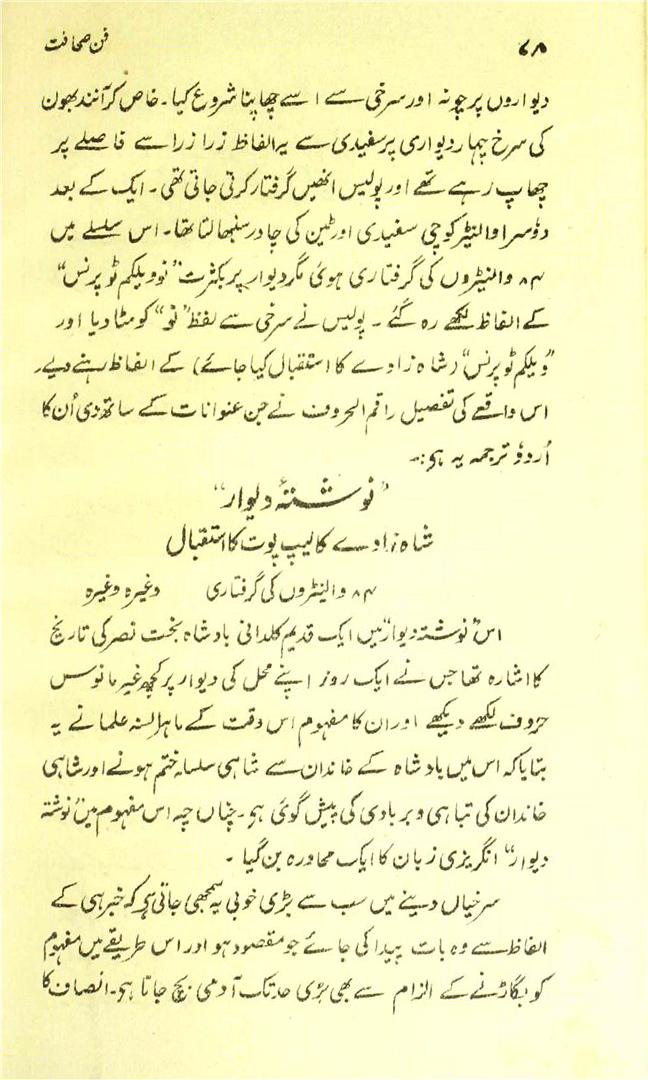 ۶۸ فن صحافت
دیواروں پر چونہ اور سرخی سے اسے چھاپنا شروع کیا۔ خاص کر آنند بھون
کی سرخ چہار دیواری پر سفیدی سے یہ الفاظ زرا زرا سے فاصلے پر
چھاپ رہے تھے اور پولیس انھیں گرفتار کرتی جاتی تھی۔ ایک کے بعد
دؤسرا والنٹیر کوچی سفیدی اور ٹین کی چادر سنبھالتا تھا۔ اس سلسلے میں
۸۴ والنٹیروں کی گرفتاری ہوئ مگر دیوار پر بکثرت ”نو ویلکم ٹو پرنس“
کے الفاظ لکھے رہ گئے۔ پولیس نے سرخی سے لفظ ”نو“ کو مٹا دیا اور
”ویلکم ٹو پرنس“ (شاہ زادے کا استقبال کیا جائے) کے الفاظ رہنے دیے۔
اس واقعے کی تفصیل راقم الحروف نے جن عنوانات کے ساتھ دی اُن کا
اُردؤ ترجمہ یہ ہی:۔
”نوشتۂ دیوار“
شاہ زادے کا لیپ پوت کا استقبال
۸۴ والنٹیروں کی گرفتاری وغیرہ وغیرہ
اس ”نوشتۂ دیوار“ میں ایک قدیم کلدانی بادشاہ بخت نصر کی تاریخ
کا اشارہ تھا جس نے ایک روز اپنے محل کی دیوار پر کچھ غیر مانوس
حروف لکھے دیکھے اور ان کا مفہوم اس وقت کے ماہر السنہ علما نے یہ
بتایا کہ اس میں بادشاہ کے خاندان سے شاہی سلسلہ ختم ہونے اور شاہی
خاندان کی تباہی و بربادی کی پیش گوئ ہی۔ چناں چہ اس مفہوم میں ”نوشتہ
دیوار“ انگریزی زبان کا ایک محاورہ بن گیا۔
سرخیاں دینے میں سب سے بڑی خوبی یہ سمجھی جاتی ہی کہ خبر ہی کے
الفاظ سے وہ بات پیدا کی جائے جو مقصود ہو اور اس طریقے میں مفہوم
کو بگاڑنے کے الزام سے بھی بڑی حد تک آدمی بچ جاتا ہی۔ انصاف کا